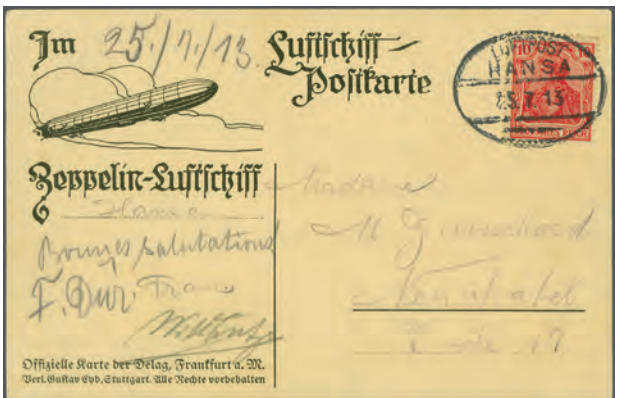 Im 25./7./13. Luftschiff-
Postkarte
LUFTPOST
HANSA
25.7.13
10 10
Zeppelin-Luftschiff
Hansa
Bonnes salutations
F. Dur.
Madame
M
Offizielle Karte der Delag, Frankfurt a. M.
Verl. Gustav Eyb, Stuttgart. Alle Rechte vorbehalten